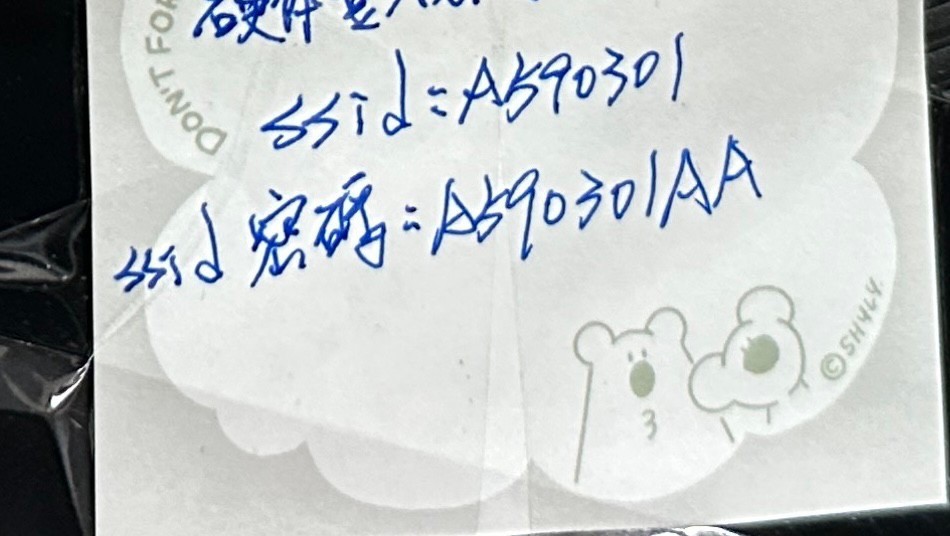 硬件
DON'T FOR
ssid:A590301
ssid密码:A590301AA
©SHYLY.